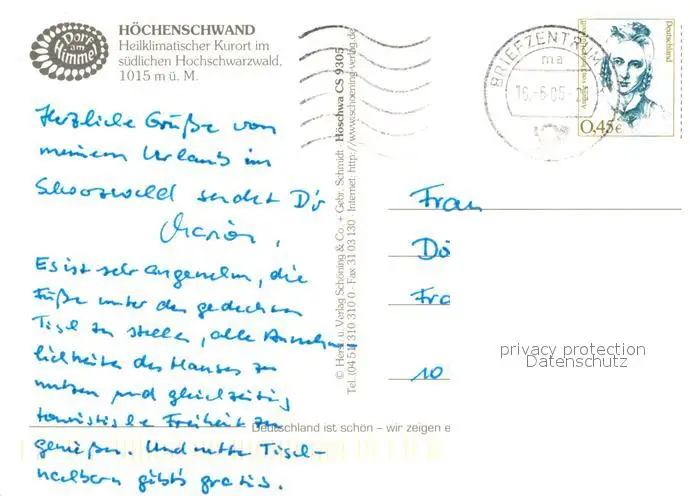 Dorf am Himmel
HÖCHENSCHWAND
Heilklimatischer Kurort im
südlichen Hochschwarzwald,
1015 m ü. M.
Herzliche Grüße von
meinem Urlaub im
Schwarzwald sendet Dir
Marion,
Es ist sehr angenehm, die
Füße unter den gedeckten
Tisch zu stellen, alle Annehm-
lichkeiten des Hauses zu
nutzen und gleichzeitig
touristische Freiheit zu
genießen. Und nette Tisch-
nachbarn gibt's gratis.
© Herst. u. Verlag Schöning & Co. + Gebr. Schmidt · Höschwa CS 9305
Tel. (04 51) 310 310 0 · Fax 31 03 130 · Internet: http://www.schoening-verlag.de
BRIEFZENTRUM
ma
16.-6.05-
Deutschland
0,45€
Frau
Dö
Fra
10
privacy protection
Datenschutz
Deutschland ist schön – wir zeigen e